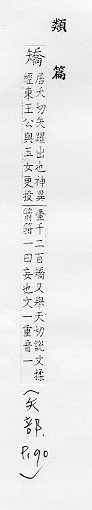 類篇
矯
居夭切矢躍出也神異
經東王公與玉女更投
壺千二百矯又舉夭切說文揉
箭箝一曰妄也文一重音一
(矢部. P.190)